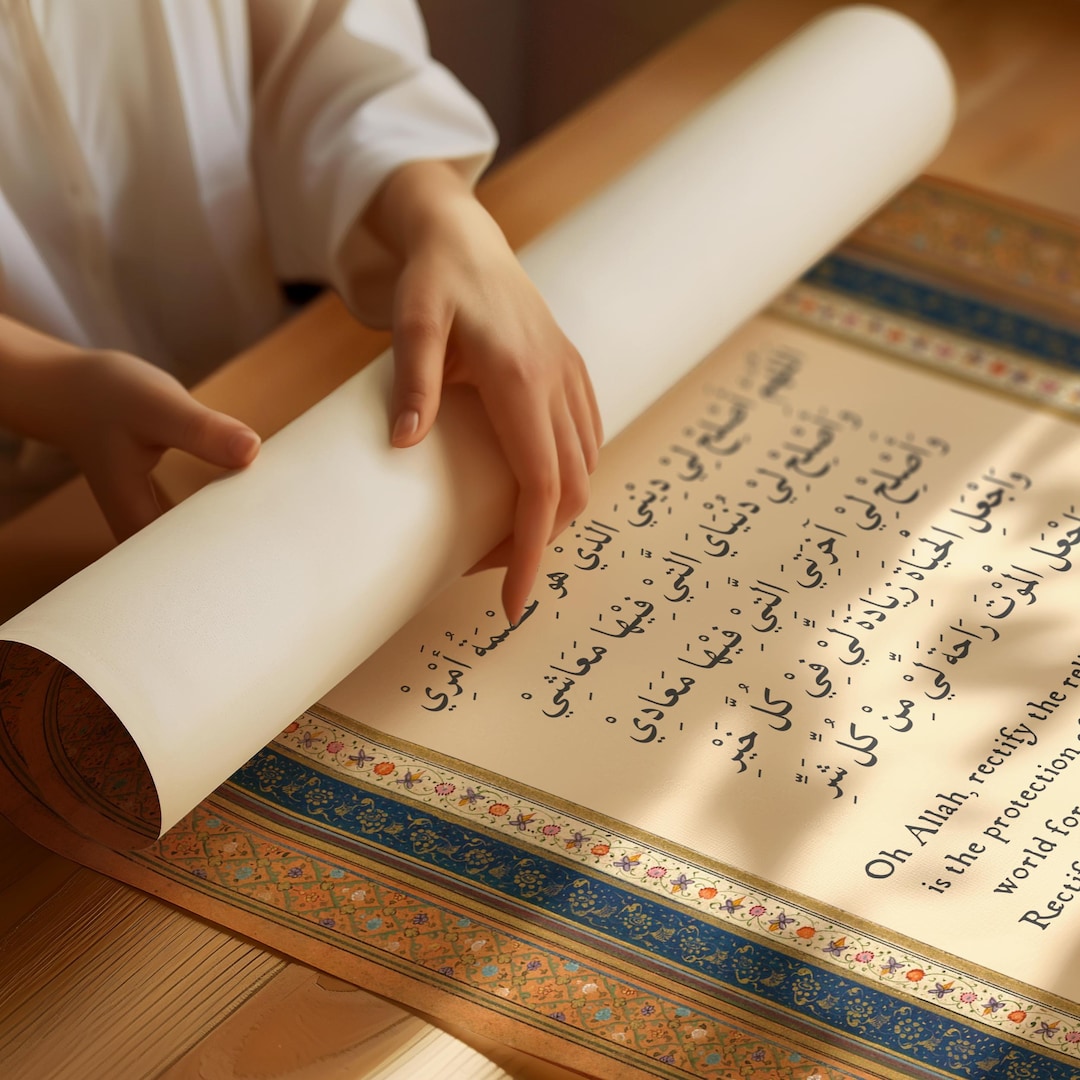 اللَّهُمَّ أَصْلِحْ لِيْ دِيْنِيَ الَّذِيْ هُوَ أَمْرِيْ
وَأَصْلِحْ لِيْ دُنْيَايَ الَّتِيْ فِيْهَا مَعَاشِيْ
وَأَصْلِحْ لِيْ آخِرَتِيْ الَّتِيْ فِيْهَا مَعَادِيْ
وَاجْعَلِ الْحَيَاةَ زِيَادَةً لِيْ فِيْ كُلِّ خَيْرٍ
اجْعَلِ الْمَوْتَ رَاحَةً لِيْ مِنْ كُلِّ شَرٍّ
Oh Allah, rectify the
is the protection
world for